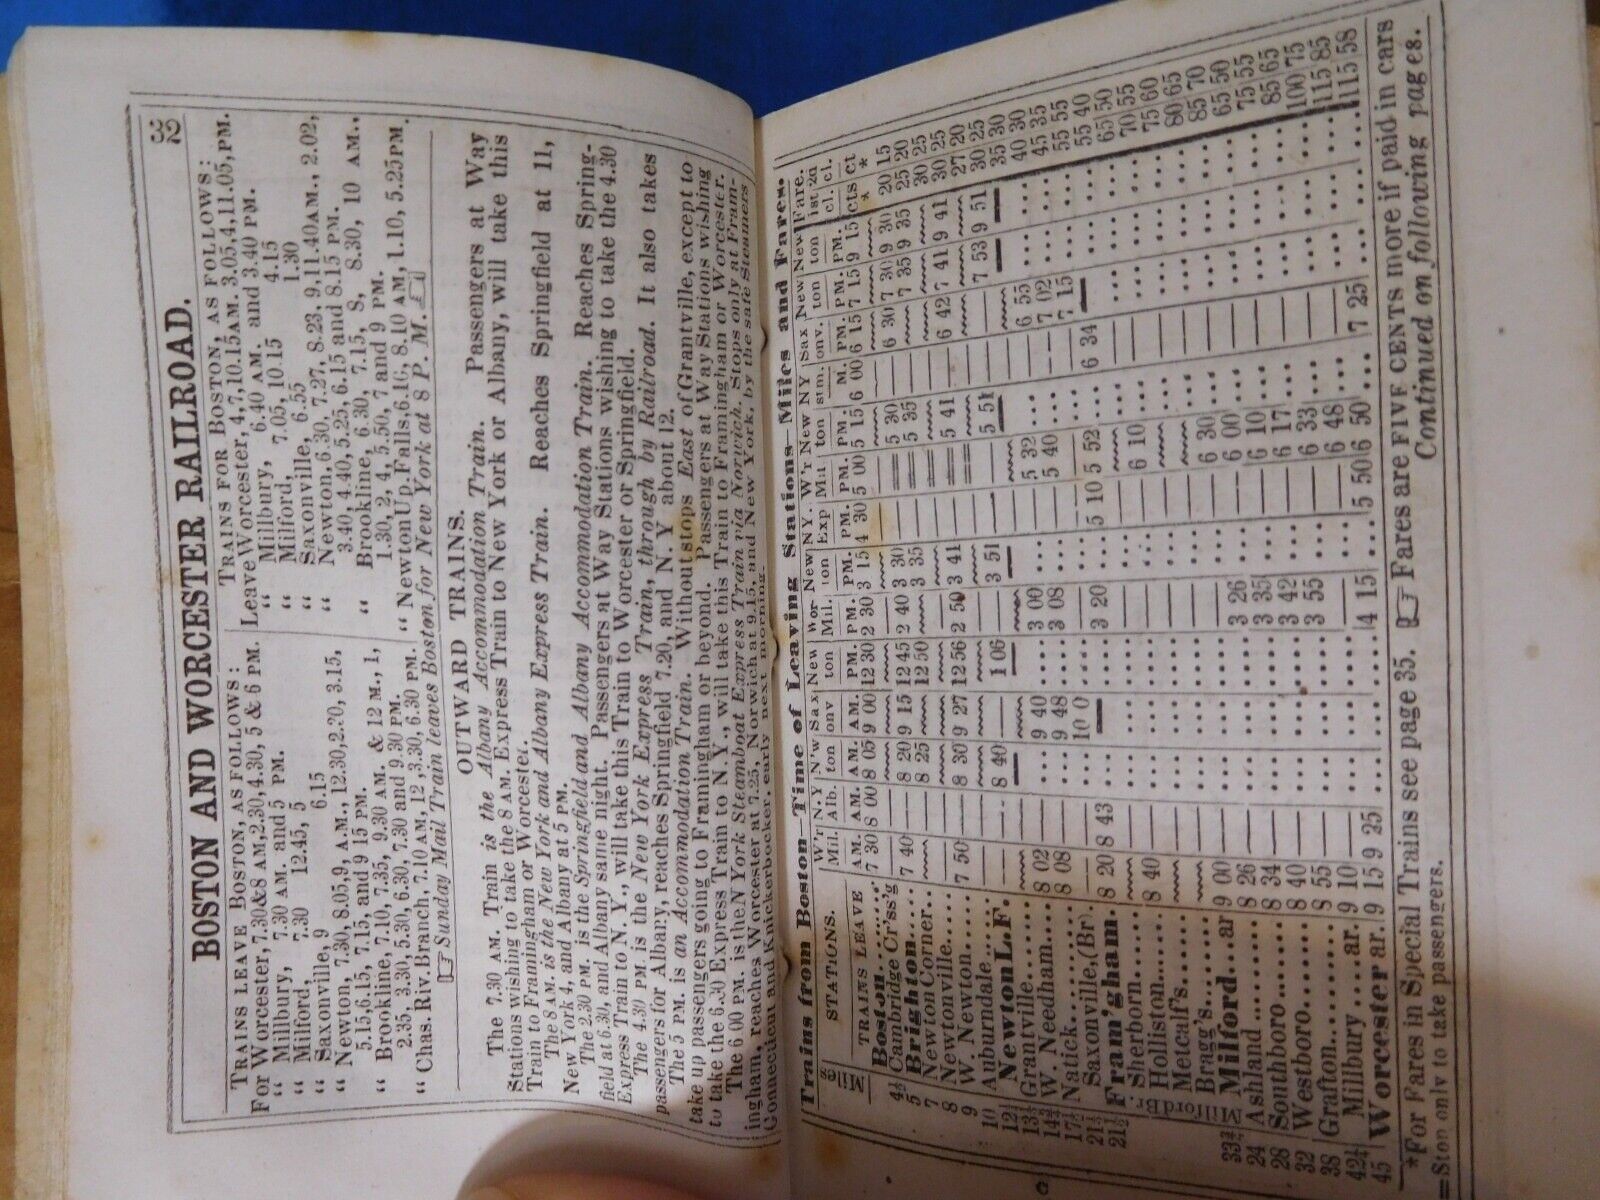 32
BOSTON AND WORCESTER RAILROAD.
TRAINS LEAVE BOSTON, AS FOLLOWS:
For Worcester, 7.30 & 8 AM. 2.30, 4.30, 5 & 6 PM.
“ Millbury, 7.30 AM. and 5 PM.
“ Milford, 7.30 12.45, 5
“ Saxonville, 9 6.15
“ Newton, 7.30, 8.05, 9, A.M., 12.30, 2.30, 3.15,
5.15, 6.15, 7.15, and 9 15 PM.
“ Brookline, 7.10, 7.35, 9.30 AM. & 12 M., 1,
2.35, 3.30, 5.30, 6.30, 7.30 and 9.30 PM.
“ Chas. Riv. Branch, 7.10 AM, 12, 3.30, 6.30 PM.
TRAINS FOR BOSTON, AS FOLLOWS:
Leave Worcester, 4, 7, 10.15 AM. 3.05, 4, 11.05, PM.
“ Millbury, 6.40 AM. and 3.40 PM.
“ Milford, 7.05, 10.15 4.15
“ Saxonville, 6.55 1.30
“ Newton, 6.30, 7.27, 8.23, 9, 11.40 AM., 2.02,
3.40, 4.40, 5.25, 6.15 and 8.15 PM.
“ Brookline, 6.30, 7.15, 8, 8.30, 10 AM.,
1.30, 2, 4, 5.50, 7 and 9 PM.
“ Newton Up. Falls, 6.10, 8.10 AM, 1.10, 5.25 PM.
☞ Sunday Mail Train leaves Boston for New York at 8 P. M.
OUTWARD TRAINS.
The 7.30 AM. Train is the Albany Accommodation Train. Passengers at Way
Stations wishing to take the 8 AM. Express Train to New York or Albany, will take this
Train to Framingham or Worcester.
The 8 AM. is the New York and Albany Express Train. Reaches Springfield at 11,
New York 4, and Albany at 5 PM.
The 2.30 PM. is the Springfield and Albany Accommodation Train. Reaches Spring-
field at 6.30, and Albany same night. Passengers at Way Stations wishing to take the 4.30
Express Train to N. Y., will take this Train to Worcester or Springfield.
The 4.30 PM. is the New York Express Train, through by Railroad. It also takes
passengers for Albany, reaches Springfield 7.20, and N. Y about 12.
The 5 PM. is an Accommodation Train. Without stops East of Grantville, except to
take up passengers going to Framingham or beyond. Passengers at Way Stations wishing
to take the 6.30 Express Train to N. Y., will take this Train to Framingham or Worcester.
The 6 00 PM. is the New York Steamboat Express Train via Norwich. Stops only at Fram-
ingham, reaches Worcester at 7.25, Norwich at 9.15, and New York, by the safe Steamers
Connecticut and Knickerbocker, early next morning.
Trains from Boston—Time of Leaving Stations—Miles and Fares.
Miles STATIONS. W'r Mil. N.Y Alb. N'w ton Sax onv New ton Wor- Mil. New ton N.Y. Exp W'r Mil New ton N Y stm. Sax onv. New ton New ton Fare. 1st cl. 2d cl.
TRAINS LEAVE AM. AM. AM. AM. PM. PM. PM. PM. PM. PM. M. PM. PM. PM. cts Ct
Boston 7 30 8 00 8 05 9 00 12 30 2 30 3 15 4 30 5 00 5 15 6 00 6 15 7 15 9 15 * *
4½ Cambridge Cr'ss'g 20 15
5 Brighton 7 40 8 20 9 15 12 45 2 40 3 30 5 30 6 30 7 30 9 30 25 20
7 Newton Corner 8 25 12 50 3 35 5 35 7 35 9 35 30 25
8 Newtonville 30 25
9 W. Newton 7 50 8 30 9 27 12 56 2 50 3 41 5 41 6 42 7 41 9 41 27 20
10 Auburndale 30 25
12½ Newton L.F. 8 40 1 06 3 51 5 51 7 53 9 51 35 30
13½ Grantville 8 02 9 40 3 00 5 32 6 55 40 30
14¾ W. Needham 8 08 9 48 3 08 5 40 7 02 45 35
17½ Natick 7 15 55 55
21½ Saxonville, (Br) 10 0 55 40
21½ Fram'gham 8 20 8 43 3 20 5 10 5 52 6 34 65 50
Milford Br. Sherborn 70 55
Holliston 8 40 6 10 75 60
Metcalf's 80 65
Bragg's 85 70
33¾ Milford ar 9 00 6 30 65 50
24 Ashland 8 26 3 26 6 00 75 55
28 Southboro 8 34 3 35 6 10 85 65
32 Westboro 8 40 3 42 6 17 100 75
38 Grafton 8 55 3 55 6 33 115 85
42½ Millbury ar. 9 10 6 48
45 Worcester ar. 9 15 9 25 4 15 5 50 6 50 7 25 115 58
*For Fares in Special Trains see page 35. ☞ Fares are FIVE CENTS more if paid in cars
=Stop only to take passengers. Continued on following pages.